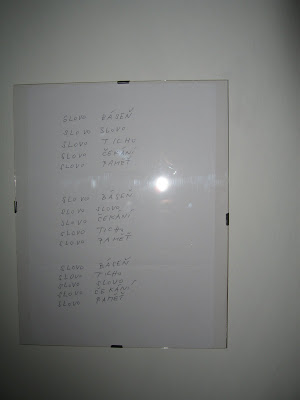 SLOVO BÁSEŇ
SLOVO SLOVO
SLOVO TICHO
SLOVO ČEKÁNÍ
SLOVO PAMĚŤ
SLOVO BÁSEŇ
SLOVO SLOVO
SLOVO ČEKÁNÍ
SLOVO TICHO
SLOVO PAMĚŤ
SLOVO BÁSEŇ
SLOVO TICHO
SLOVO SLOVO
SLOVO ČEKÁNÍ
SLOVO PAMĚŤ